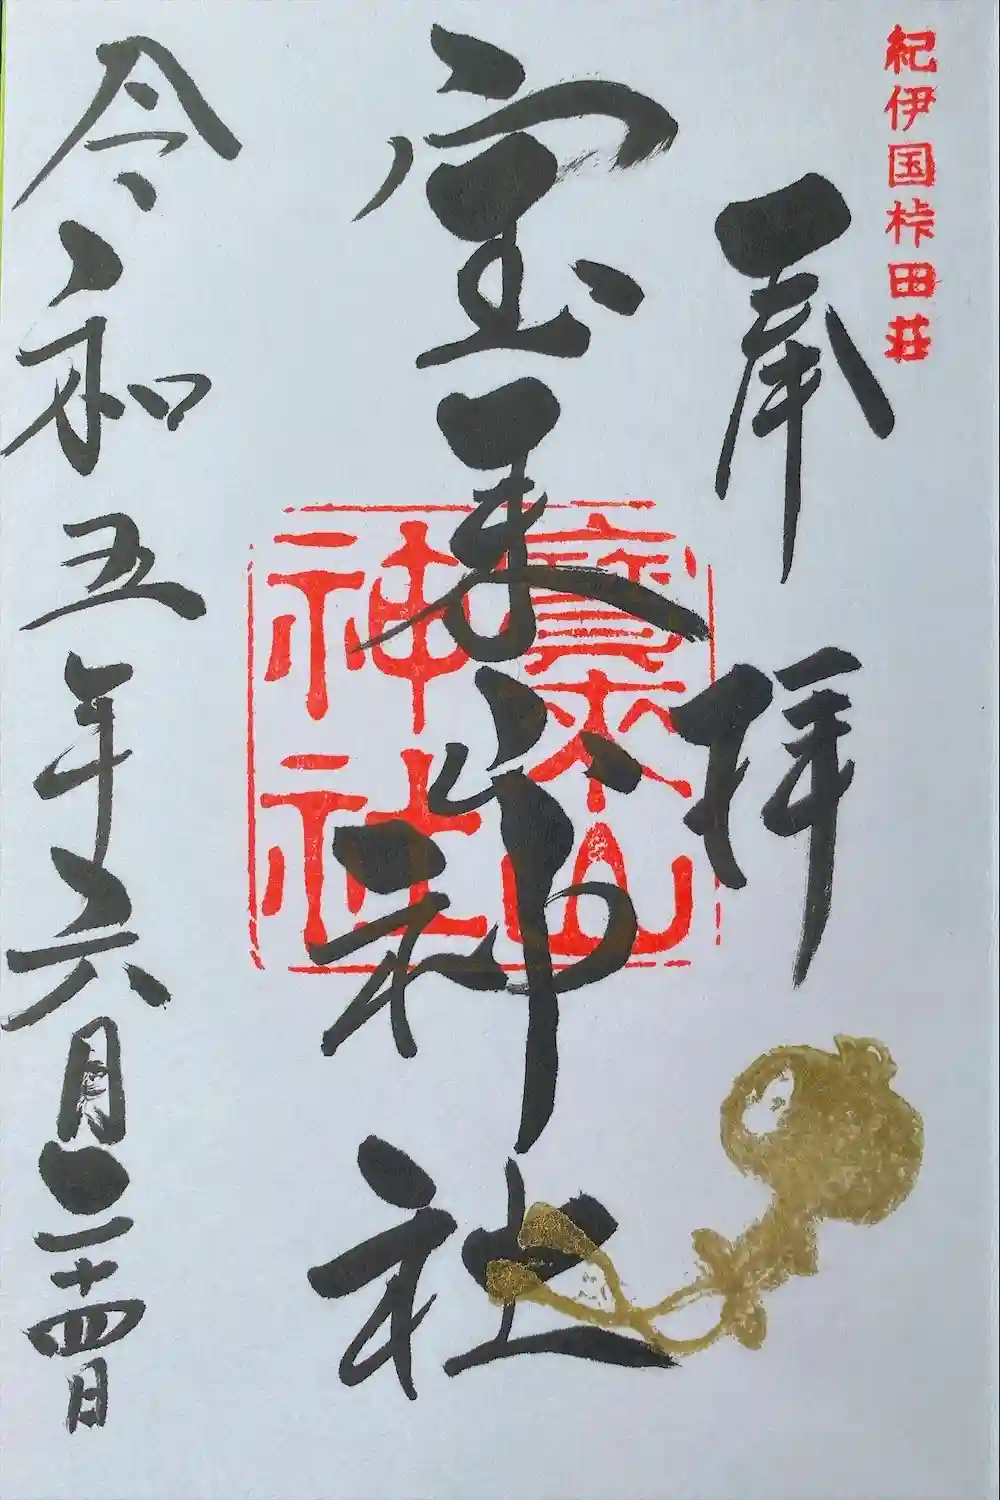 紀伊国桛田荘
奉拝
宝来山神社
寶来山
神社
令和五年六月二十四日